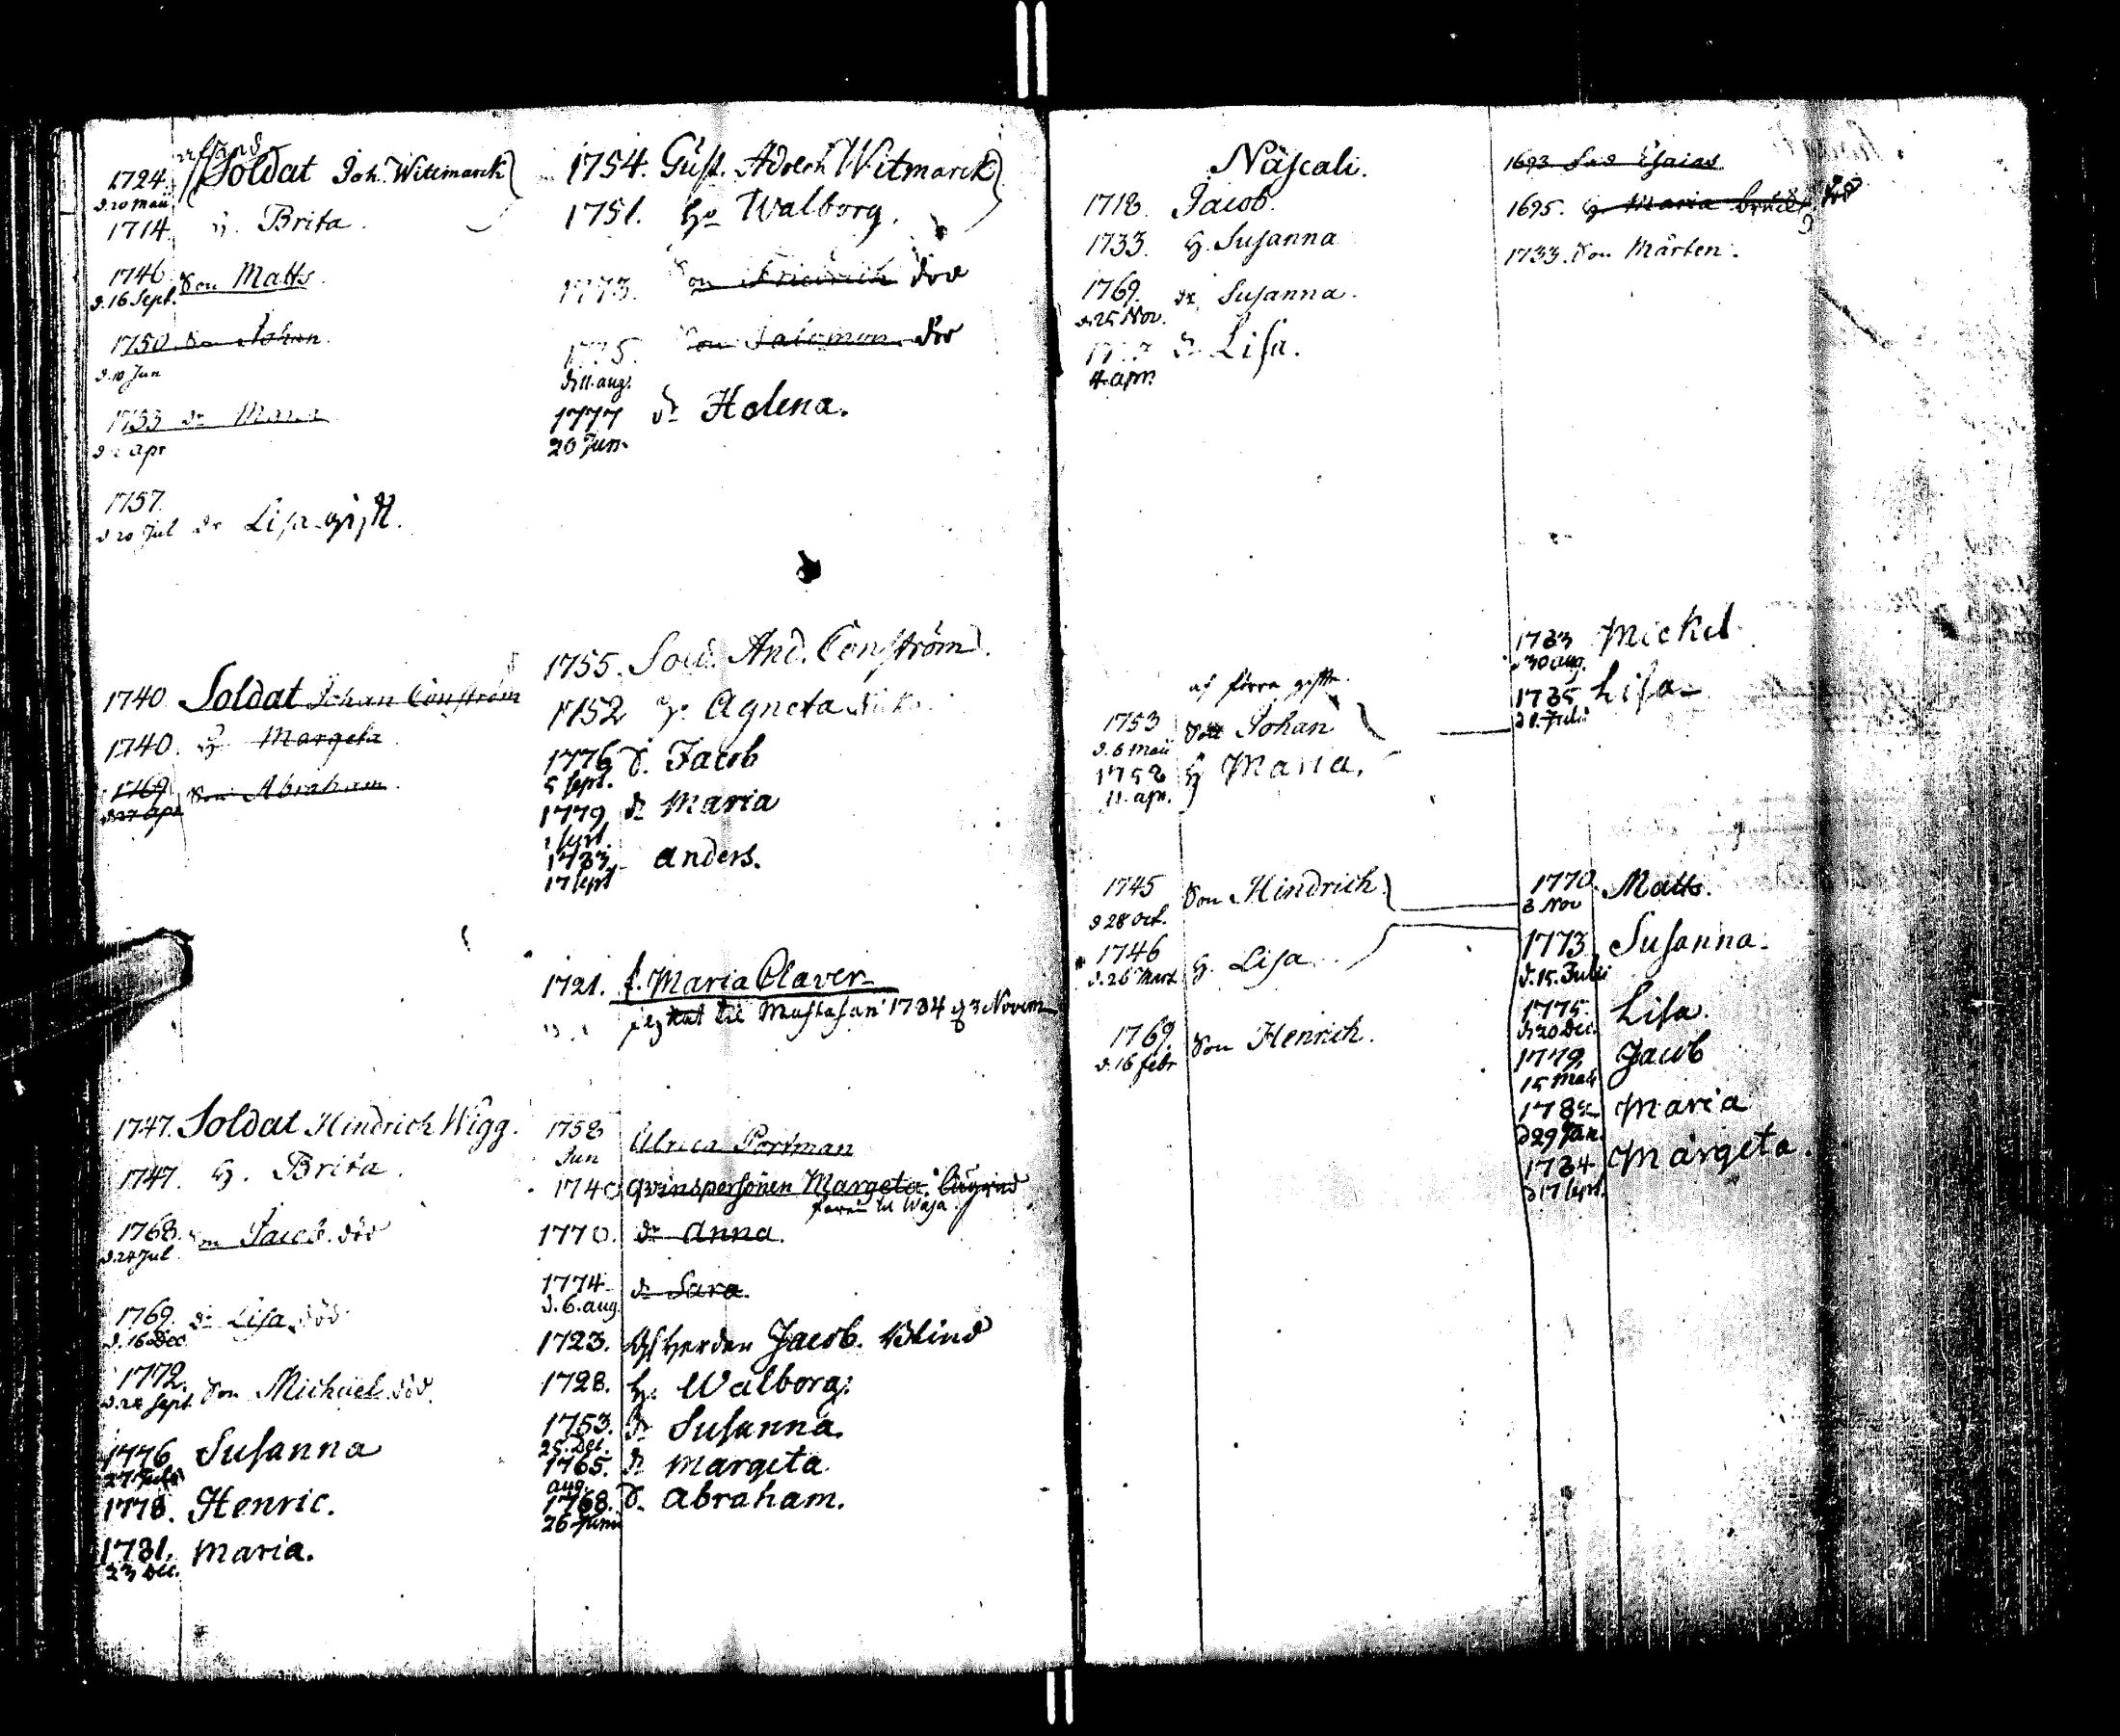 1724. Soldat Joh. Witimarck
d. 20 Maii
1714. h. Brita.
1746. Son Matts.
d. 16 Sept.
1750. Son Johan.
d. 10 Jun
1753 dr Maria
apr
1757.
d 20 Jul dr Lisa gift.
1740. Soldat Johan Conström
1740. h. Margeta
1769 Son Abraham.
d 27 apr
1747. Soldat Hindrich Wigg.
1747. h. Brita.
1768. Son Jacob. död
d. 24 Jul.
1769. dr Lisa död
d. 16 Dec
1772. Son Michael död.
Sept.
1776 Susanna
27 Julii
1778. Henric.
1781. Maria.
23 Dec.
1754. Gust. Adolch Witmarck
1751. Ho Walborg.
1773. Son Friedrich död
1775. Son Salomon död
d. 11. aug.
1777 dr Helena.
20 Jun.
1755. Sold. And. Conström.
1752 Agneta
1776 S. Jacob
5 Sept.
1779 dr Maria
1 Sept.
1783. Anders.
17 Sept
1721. f. Maria Claver
til Mustasari 1784 d 3 Novem
1758 Ulrica Portman
Jun
1740 Qvinspersonen Margeta
til Wasa
1770. dr Anna.
1774 dr Sara.
d. 6. aug.
1723. Jacob. Blind
1728. h. Walborg.
1753. dr Susanna.
25. Dec.
1765. dr Margeta
aug.
1768. S. Abraham.
26 Junii
Näscali.
1718. Jacob.
1733. h. Susanna
1769. dr Susanna.
d. 25 Nov.
dr Lisa.
4. apr.
af förra gifte.
1753 Son Johan
d. 6 Maii
h Maria.
11. apr.
1745 Son Hindrich
d 28 Oct.
1746 h. Lisa
d. 26 Mart
1769. Son Henrich.
d. 16 febr
1693 Esaias
1695. h. Maria död
1733. Son Mårten.
1783 Mickel
30 aug.
1785 Lisa
Julii
1770. Matts.
3 Nov
1773. Susanna.
d. 15. Julii
1775. Lisa.
d 20 Dec.
1779 Jacob
15 Maii
Maria
d 29 Jan.
1784 Margeta.
d 17 Sept.